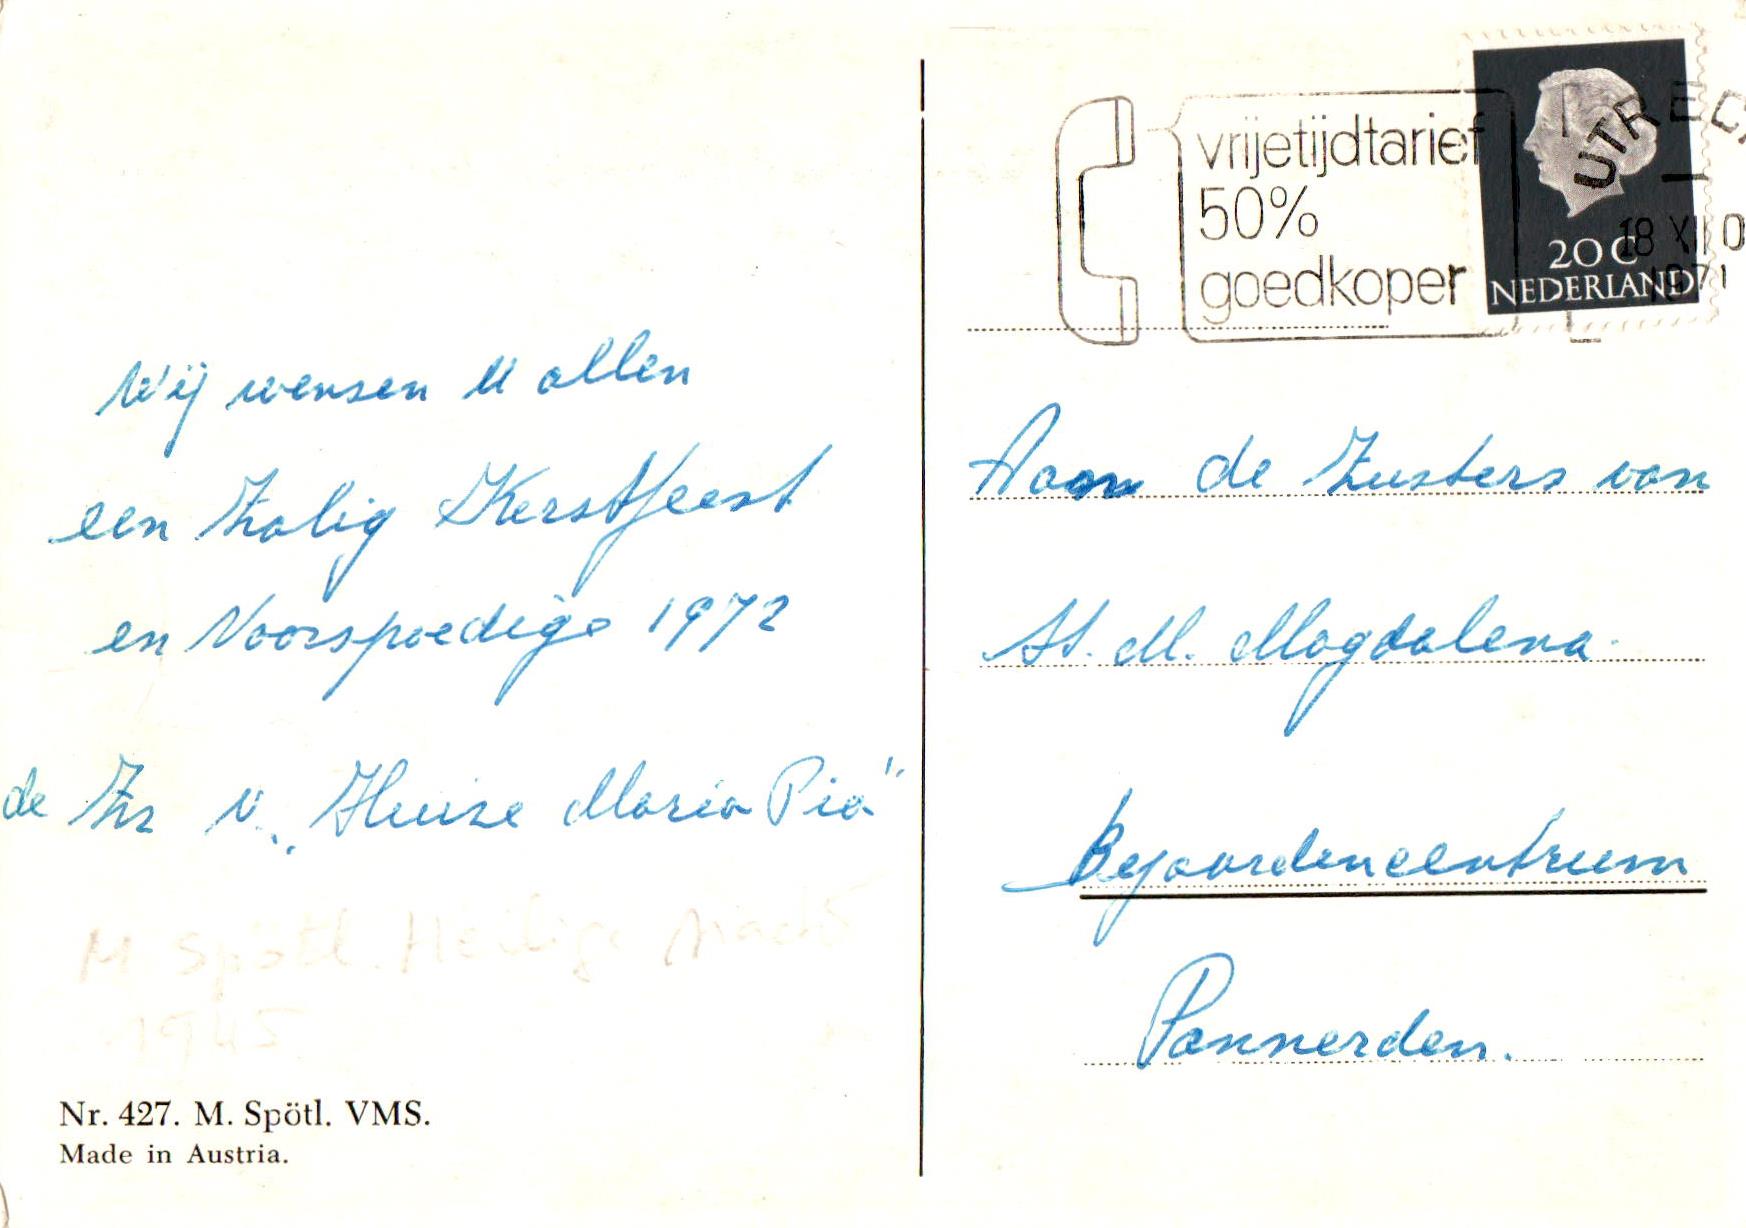 Wij wensen U allen
een Zalig Kerstfeest
en Voorspoedige 1972
de Zrs v. „Huize Maria Pia"
M Spötl. Heilige Nacht
1945
Nr. 427. M. Spötl. VMS.
Made in Austria.
vrijetijdtarief
50%
goedkoper
UTREC
18 XII 0
1971
20 C
NEDERLAND
Aan de Zusters van
St. M. Magdalena.
Bejaardencentrum
Pannerden.